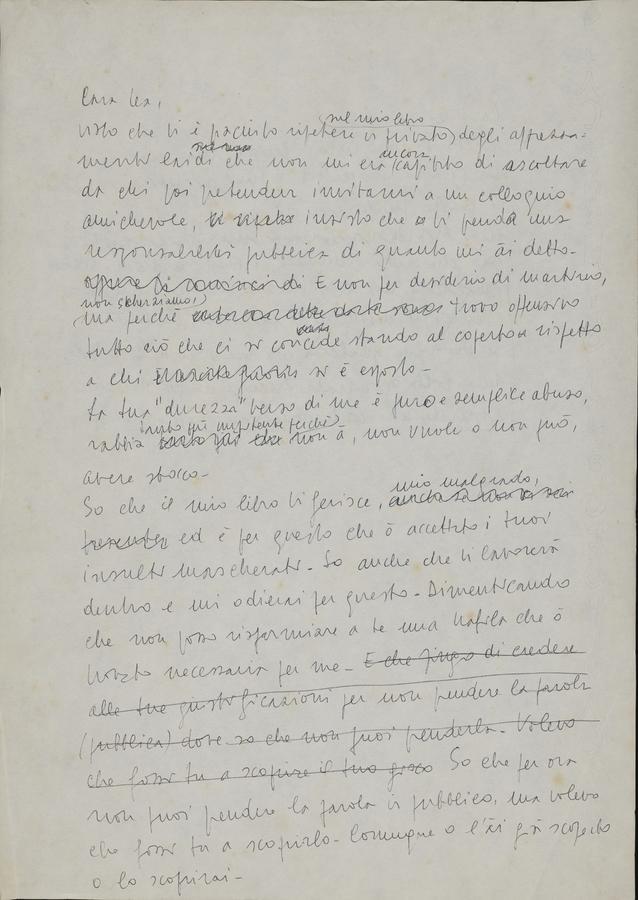 Cara Lea,
sul mio libro
visto che ti è piaciuto ripetere in privato degli apprezza=
menti che non mi era ancora capitato di ascoltare
da chi poi pretender invitarmi a un colloquio
amichevole, insisto che ti prenda una
responsabilità pubblica di quanto mi ài detto.
E non per desiderio di martirio,
(non scherziamo,)
ma perché trovo offensivo
tutto ciò che ci si concede stando al coperto rispetto
a chi si è esposto.
La tua "durezza" verso di me è puro e semplice abuso,
rabbia tanto più impotente perché non à, non vuole o non può,
avere sbocco.
So che il mio libro ti ferisce, mio malgrado,
ed è per questo che ò accettato i tuoi
insulti mascherati. So anche che ti lavorerà
dentro e mi odierai per questo. Dimenticando
che non posso risparmiare a te una trafila che ò
trovato necessaria per me. E che fingo di credere
alle tue giustificazioni per non prendere la parola
(pubblica) dove so che non puoi prenderla. Volevo
che fossi tu a scoprire il tuo gioco So che per ora
non puoi prendere la parola in pubblico, ma volevo
che fossi tu a scoprirlo. Comunque o l'ài già scoperto
o lo scoprirai.